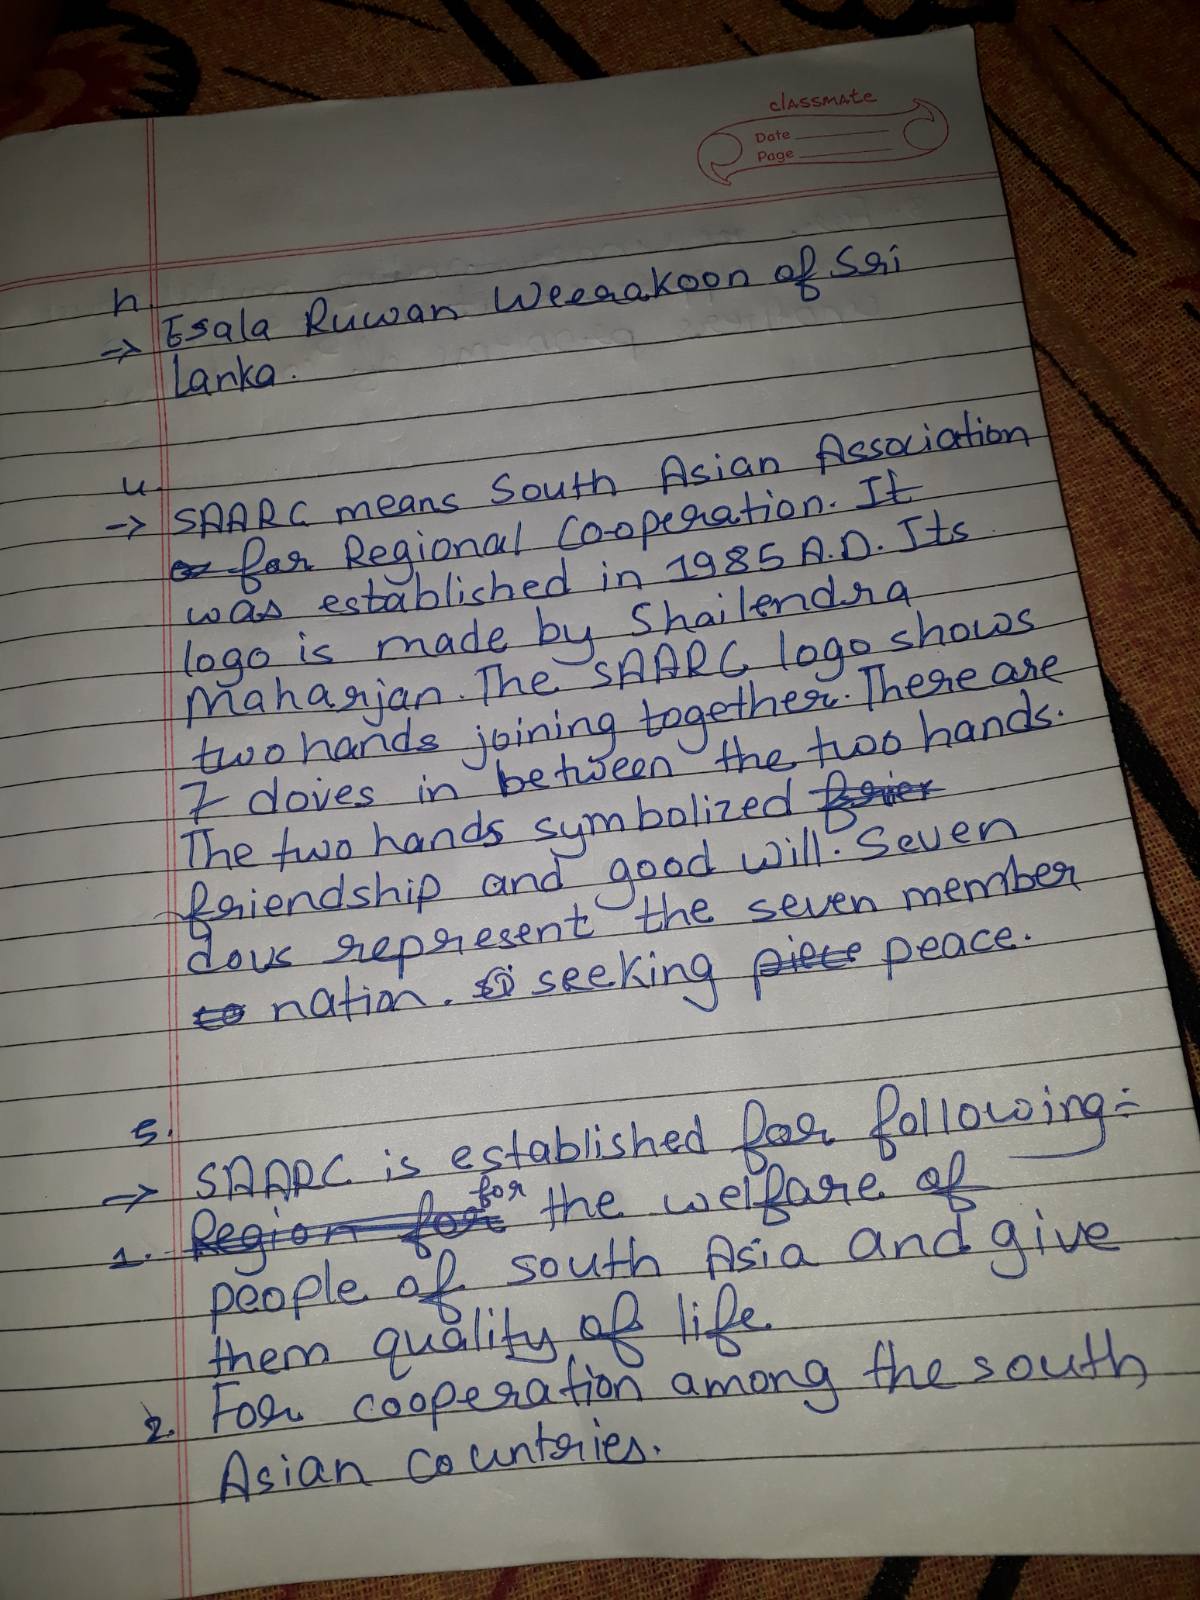 classmate
Date
Page
h.
→ Esala Ruwan Weerakoon of Sri
Lanka.
4.
→ SAARC means South Asian Association
for Regional Co-operation. It
was established in 1985 A.D. Its
logo is made by Shailendra
Maharjan. The SAARC logo shows
two hands joining together. There are
7 doves in between the two hands.
The two hands symbolized
friendship and good will. Seven
dovs represent the seven member
nation. seeking peace.
5.
→ SAARC is established for following:-
1. for the welfare of
people of south Asia and give
them quality of life.
2. For cooperation among the south
Asian countries.